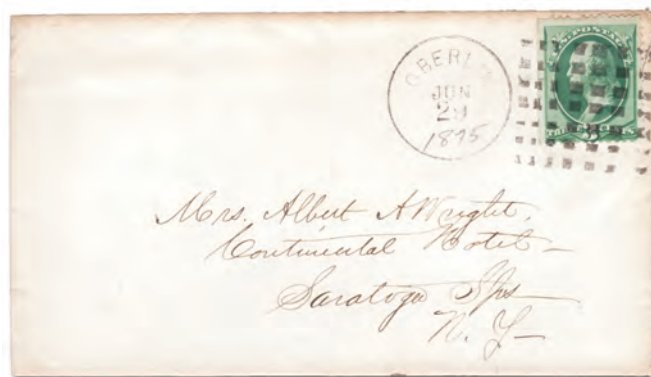 U.S. POSTAGE
OBERLIN
JUN
29
1875
Mrs. Albert A Wright,
Continental Hotel –
Saratoga Sps
N. Y –